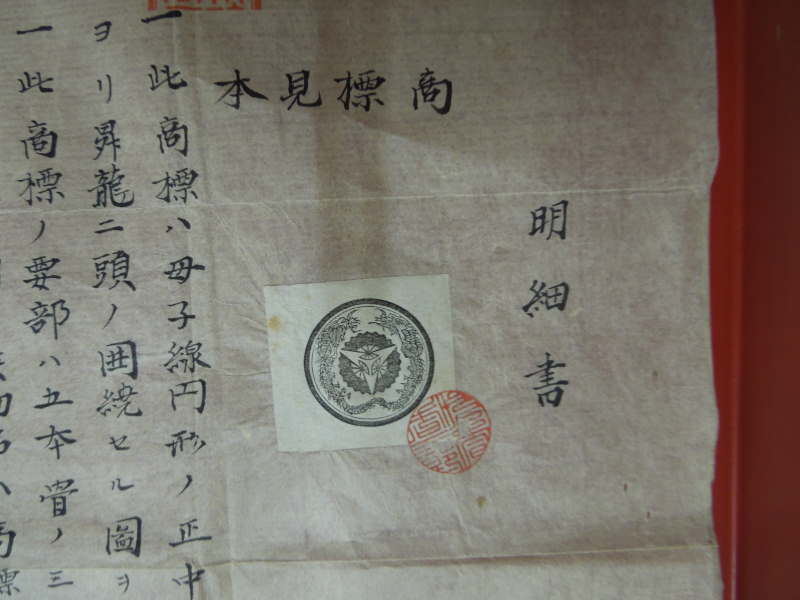 明細書
商標見本
一此商標ハ母子線円形ノ正中
ヨリ昇龍二頭ノ囲繞セル圖ヲ
一此商標ノ要部ハ五本骨ノ三